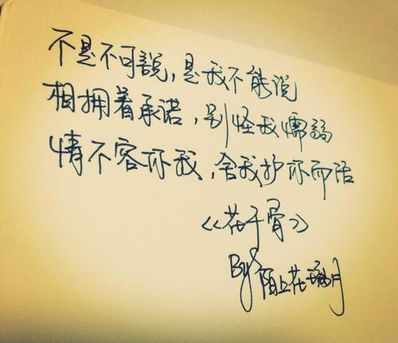 不是不可說,是我不能说
相拥着承诺,别怪我懦弱
情不容你我,舍我护你而活
《花千骨》
By 陌上花